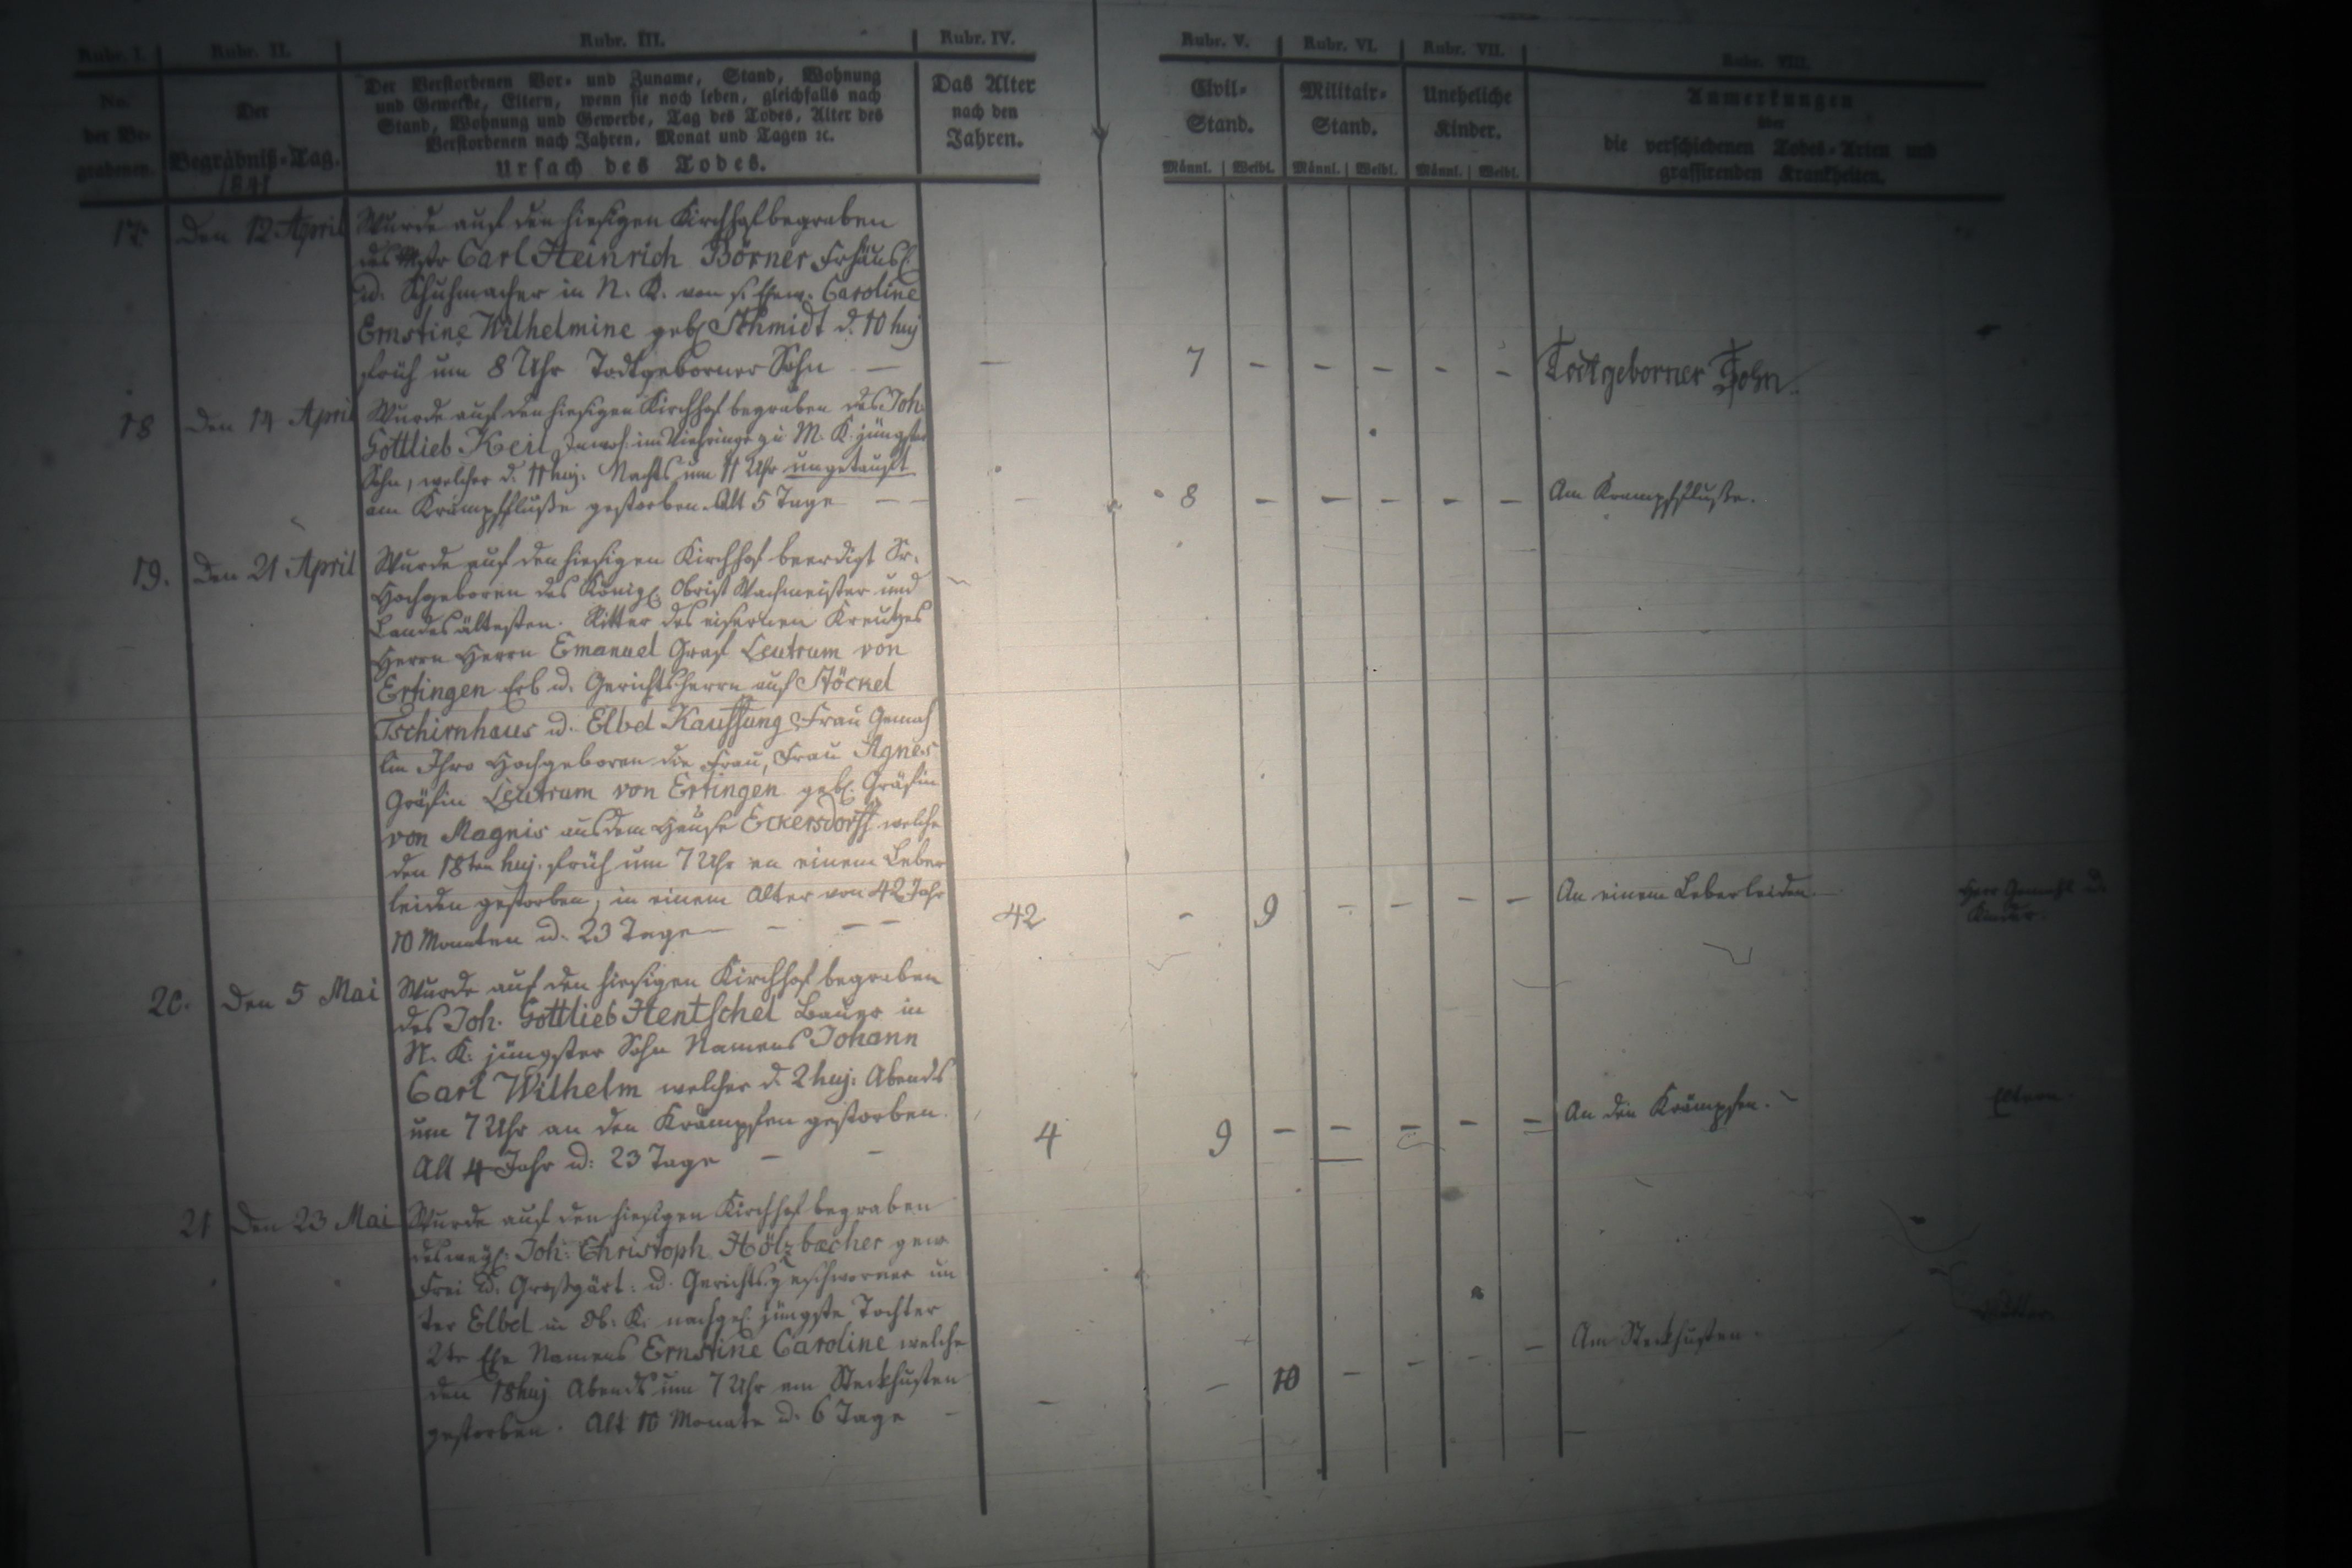 Rubr. I. Rubr. II. Rubr. III. Rubr. IV. Rubr. V. Rubr. VI. Rubr. VII. Rubr. VIII.
No. der Begrabenen.
Der
Begräbniß-Tag.
1841
Der Verstorbenen Vor- und Zuname, Stand, Wohnung
und Gewerbe, Eltern, wenn sie noch leben, gleichfalls nach
Stand, Wohnung und Gewerbe, Tag des Todes, Alter des
Verstorbenen nach Jahren, Monat und Tagen ꝛc.
Ursach des Todes.
Das Alter
nach den
Jahren.
Civil-
Stand.
Männl. Weibl.
Militair-
Stand.
Männl. Weibl.
Uneheliche
Kinder.
Männl. Weibl.
Anmerkungen
über
die verschiedenen Todes-Arten und
grassirenden Krankheiten.
17. Den 12 April Wurde auf den hiesigen Kirchhof begraben
des Mstr Carl Heinrich Börner Frhäusl.
u. Schuhmacher in N. K. von s. Ehew. Caroline
Ernstine Wilhelmine geb. Schmidt d. 10 huj
früh um 8 Uhr Todtgeborner Sohn — — 7 – – – – – Todtgeborner Sohn.
18 Den 14 April Wurde auf den hiesigen Kirchhof begraben des Joh.
Gottlieb Keil Inwoh. im Viehringe zu M. K. jüngster
Sohn, welcher d. 11 huj. Nachts um 11 Uhr ungetauft
am Krampfflusse gestorben. Alt 5 Tage — — – 8 – – – – – Am Krampfflusse.
19. Den 21 April Wurde auf den hiesigen Kirchhof beerdigt Sr.
Hochgeboren des Königl. Obrist Wachmeister und
Landesältesten. Ritter des eisernen Kreutzes
Herrn Herrn Emanuel Graf Leutrum von
Ertingen Erb u. Gerichtsherrn auf Stöckel
Tschirnhaus u. Elbel Kauffung Frau Gemah
lin Ihro Hochgeboren die Frau, Frau Agnes
Gräfin Leutrum von Ertingen geb. Gräfin
von Magnis aus dem Hause Eckersdorff welche
den 18ten huj. früh um 7 Uhr an einem Leber
leiden gestorben, in einem Alter von 42 Jahr
10 Monaten u. 23 Tage — – — – 42 – 9 – – – – An einem Leberleiden. Herr Gemahl u.
Kinder.
20. Den 5 Mai Wurde auf den hiesigen Kirchhof begraben
des Joh. Gottlieb Hentschel Bauer in
N. K. jüngster Sohn Namens Johann
Carl Wilhelm welcher d. 2 huj. Abends
um 7 Uhr an den Krämpfen gestorben.
Alt 4 Jahr u. 23 Tage – – 4 9 – – – – – An den Krämpfen. Eltern.
21 Den 23 Mai Wurde auf den hiesigen Kirchhof begraben
des weyl. Joh. Christoph Hölzbecher gew.
Frei u. Großgärt. u. Gerichtsgeschworner un
ter Elbel in Ob. K. nachgel. jüngste Tochter
2tr Ehe Namens Ernstine Caroline welche
den 18 huj Abends um 7 Uhr am Steckhusten
gestorben. Alt 10 Monate u. 6 Tage – – – 10 – – – – Am Steckhusten. Mutter.